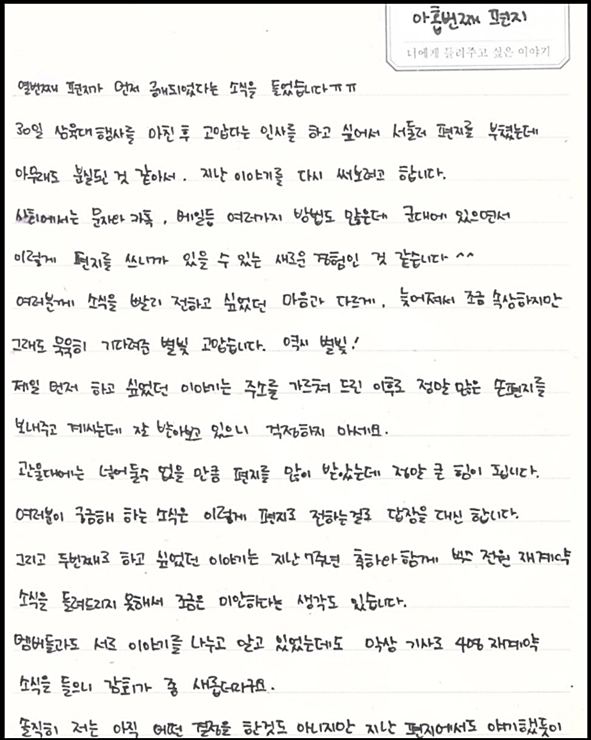 아홉번째 편지
너에게 들려주고 싶은 이야기
열번째 편지가 먼저 공개되었다는 소식을 들었습니다ㅠㅠ
30일 삼육대 행사를 마친 후 고맙다는 인사를 하고 싶어서 서둘러 편지를 부쳤는데
아무래도 분실된 것 같아서. 지난 이야기를 다시 써보려고 합니다.
사회에서는 문자나 카톡, 메일등 여러가지 방법도 많은데 군대에 있으면서
이렇게 편지를 쓰니까 있을 수 있는 새로운 경험인 것 같습니다^^
여러분께 소식을 빨리 전하고 싶었던 마음과 다르게, 늦어져서 조금 속상하지만
그래도 묵묵히 기다려준 별빛 고맙습니다. 역시 별빛!
제일 먼저 하고 싶었던 이야기는 주소를 가르쳐 드린 이후로 정말 많은 손편지를
보내주고 계시는데 잘 받아보고 있으니 걱정하지 마세요.
관물대에는 넣어둘수 없을 만큼 편지를 많이 받았는데 정말 큰 힘이 됩니다.
여러분이 궁금해 하는 소식은 이렇게 편지로 전하는걸로 답장을 대신 합니다.
그리고 두번째로 하고 싶었던 이야기는 지난 7주년 축하와 함께 빅스 전원 재계약
소식을 들려드리지 못해서 조금은 미안하다는 생각도 있습니다.
멤버들과도 서로 이야기를 나누고 알고 있었는데도 막상 기사로 재계약
소식을 들으니 감회가 좀 새롭더라구요.
솔직히 저는 아직 어떤 결정을 한것도 아니지만 지난 편지에서도 얘기했듯이